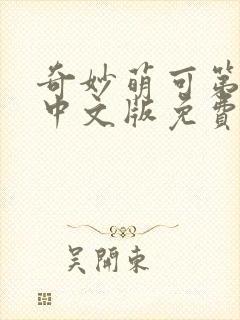 奇妙萌可第
中文版免费
吴開東